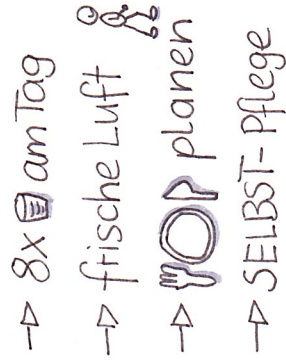 → 8x am Tag
→ frische Luft
→ planen
→ SELBST-Pflege